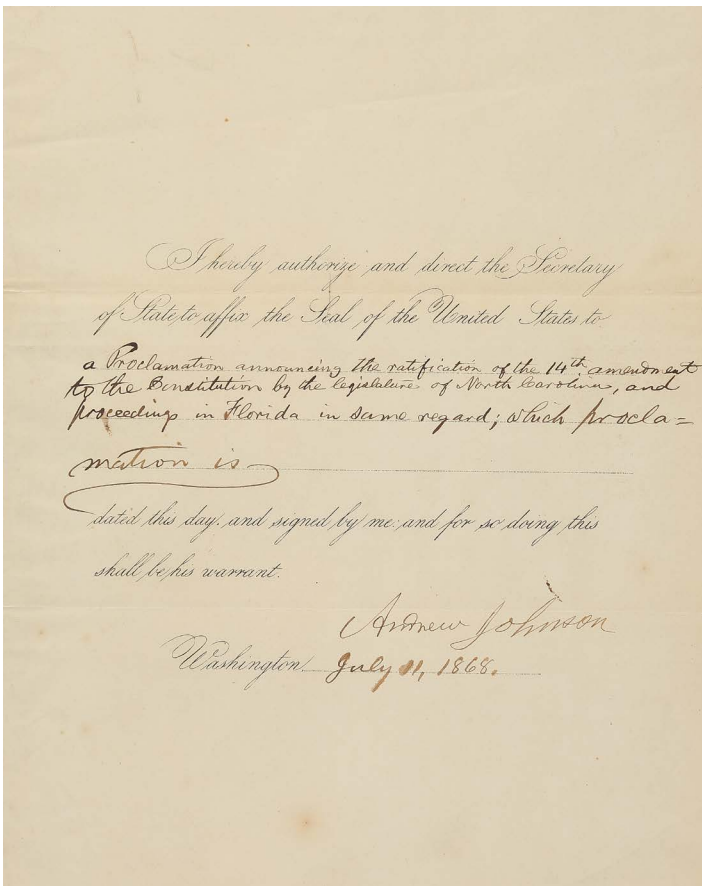 I hereby authorize and direct the Secretary
of State to affix the Seal of the United States to
a Proclamation announcing the ratification of the 14th amendment
to the Constitution by the legislature of North Carolina, and
proceedings in Florida in same regard; which procla=
mation is
dated this day, and signed by me: and for so doing this
shall be his warrant.
Andrew Johnson
Washington July 11, 1868.